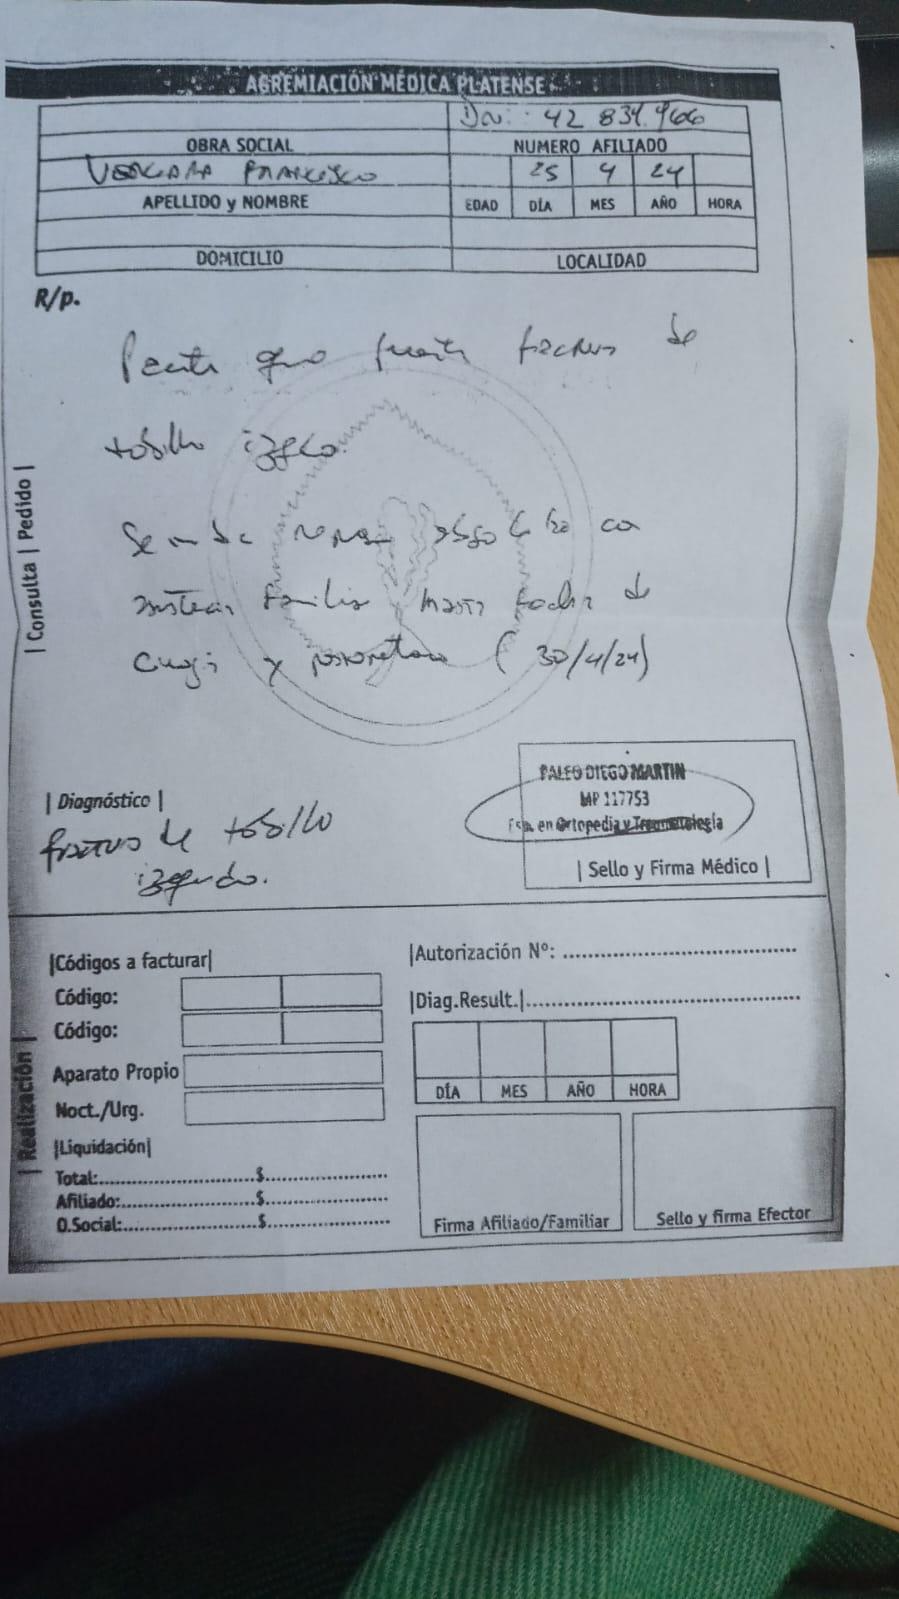 AGREMIACIÓN MÉDICA PLATENSE
42 834.966
OBRA SOCIAL NUMERO AFILIADO
VERGARA FRANCISCO 25 4 24
APELLIDO y NOMBRE EDAD DÍA MES AÑO HORA
DOMICILIO LOCALIDAD
R/p.
| Consulta | Pedido |
que fractura de
tobillo izqdo.
reposo absoluto con
asistencia familiar hasta fecha de
(30/4/24)
| Diagnóstico |
fractura de tobillo
izquierdo.
PALEO DIEGO MARTIN
MP 117753
Esp. en Ortopedia y Traumatología
| Sello y Firma Médico |
| Realización |
|Códigos a facturar|
Código:
Código:
Aparato Propio
Noct./Urg.
|Liquidación|
Total:....................$....................
Afiliado:....................$....................
O.Social:....................$....................
|Autorización Nº: ....................
|Diag.Result.|....................
DÍA MES AÑO HORA
Firma Afiliado/Familiar
Sello y firma Efector